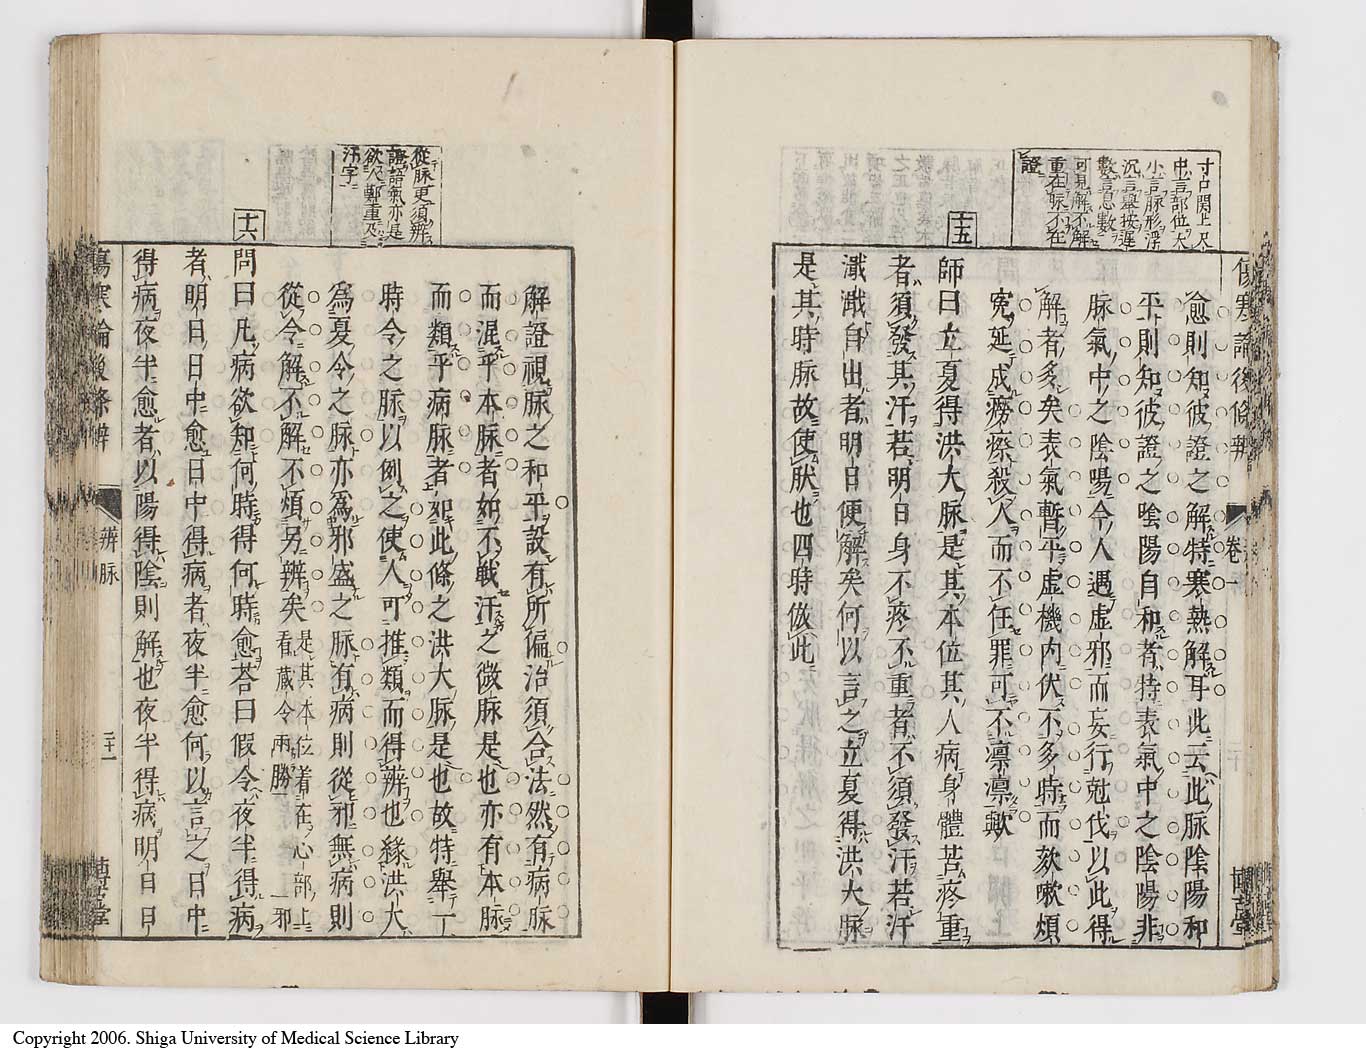 寸口関上尺
中言部位大
小言脉形浮
沉言擧按遲
數言息數
可見解不解
重在脉不在
證
傷寒論後條辨
卷一
博古堂
愈則知彼證之解特寒熱解耳此云此脉陰陽和
平則知彼證之陰陽自和者特表氣中之陰陽非
脉氣中之陰陽今人遇虛邪而妄行尅伐以此得
解者多矣表氣暫平虛機内伏不多時而欬嗽煩
寃延成癆瘵殺人而不任罪可不凛凛歟
十五
師曰立夏得洪大脉是其本位其人病身體苦疼重
者須發其汗若明日身不疼不重者不須發汗若汗
濈濈自出者明日便解矣何以言之立夏得洪大脉
是其時脉故使肰也四時倣此
從脉更須辨
證語氣亦是
欲人鄭重及
汗字
解證視脉之和平設有所偏治須合法然有病脉
而混乎本脉者如不戰汗之微脉是也亦有本脉
而類乎病脉者如此條之洪大脉是也故特舉一
時令之脉以例之使人可推類而得辨也緣洪大
爲夏令之脉亦爲邪盛之脉有病則從邪無病則
從令解不解不煩另辨矣是其本位着在心部上
看藏令兩勝一邪
十六
問曰凡病欲知何時得何時愈荅曰假令夜半得病
者明日日中愈日中得病者夜半愈何以言之日中
得病夜半愈者以陽得陰則解也夜半得病明日日
傷寒論後條辨
辨脉
二十一
博古堂
Copyright 2006. Shiga University of Medical Science Library